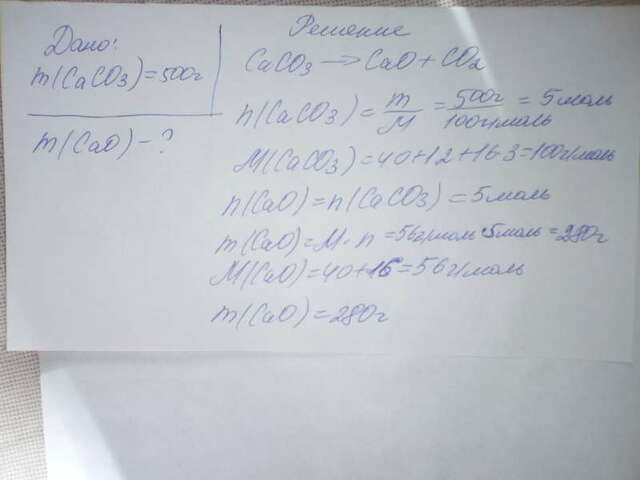 Дано:
m(CaCO3)=500г
m(CaO)-?
Решение
CaCO3 → CaO + CO2
n(CaCO3) = m/M = 500г/100г/моль = 5моль
M(CaCO3)=40+12+16·3=100г/моль
n(CaO)=n(CaCO3)=5моль
m(CaO)=M·n=56г/моль·5моль=280г
M(CaO)=40+16=56г/моль
m(CaO)=280г